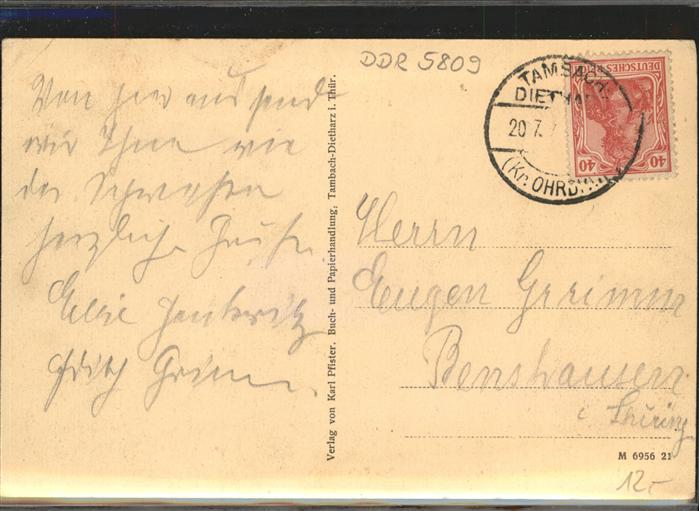 DDR 5809
Von hier aus sende
wir Ihne wie
der
herzliche Grüße
Ellie
Fritz Grimm.
Verlag von Karl Pfister, Buch- und Papierhandlung, Tambach-Dietharz i. Thür.
TAMBACH-
DIETHA
20.7.
(Kr. OHRD
DEUTSCHES REICH
40 40
Herrn
Eugen Grimm
Benshausen
i. Thüring
M 6956 21
12,-